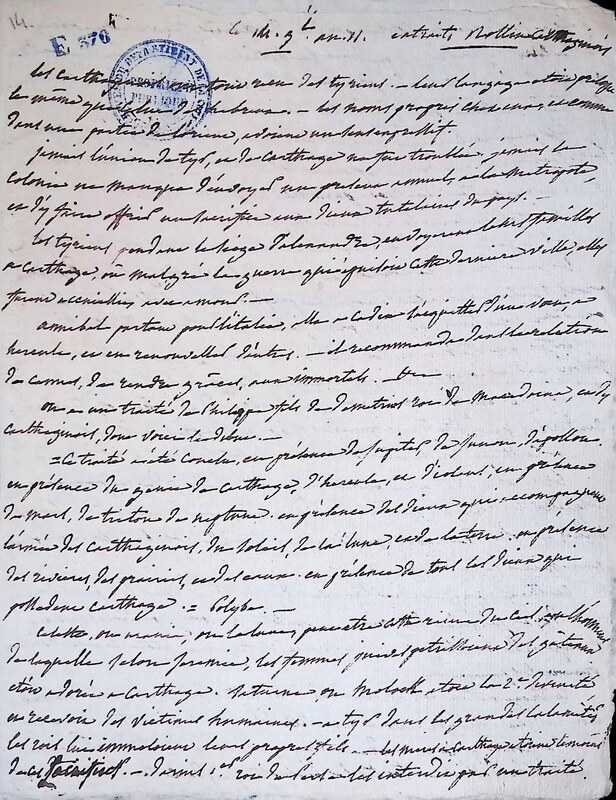 14.
E 376
ce 14. g.al an 11. extraits Rollin
les carthaginois tous venus des tyriens. — leur langage était presque
le même que celui des hebreux. — les noms propres chez eux, et comme
dans une partie de l'orient, avaient un sens expressif.
jamais l'union de tyr, et de Carthage ne fut troublée, jamais la
colonie ne manqua d'envoyer un présent annuel, à la métropole,
et d'y faire offrir un sacrifice aux dieux tutélaires du pays. —
les tyriens pendant le siège d'alexandre, envoyèrent leurs familles
à carthage, où malgré la guerre qui épuisoit cette dernière ville, elles
furent accueillies avec amour. —
annibal partant pour l'italie, alla à cadix s'acquitter d'un vœu, à
hercule, et en renouveller d'autres. — il recommanda dans la relation
de cannes, de rendre grâces, aux immortels. —
on a un traité de Philippe fils de demetrius roi de macedoine, et des
carthaginois, dont voici le début. —
= Ce traité a été conclu, en présence de jupiter, de junon, d'apollon.
en présence du génie de carthage, d'hercule, et d'iolaus, en présence
de mars, de triton, de neptune. en présence des dieux qui accompagnent
l'armée des carthaginois, du soleil, de la lune, et de la terre. en présence
des rivières, des prairies, et des eaux. en présence de tous les dieux que
possedent carthage. = Polybe. —
Celeste, ou uranie, ou la lune, peut être cette reine du ciel en l'honneur
de laquelle selon jeremie, les femmes juives petrissoient des gateaux
étoit adorée à carthage. Saturne, ou Moloch étoit la 2.e divinité
et recevoit des victimes humaines. — à tyr dans les grandes calamités
les rois lui immoloient leurs propres fils. — les mères à carthage étoient témoins
de ces sacrifices. — darius 1.er roi de perse les interdit par un traité.